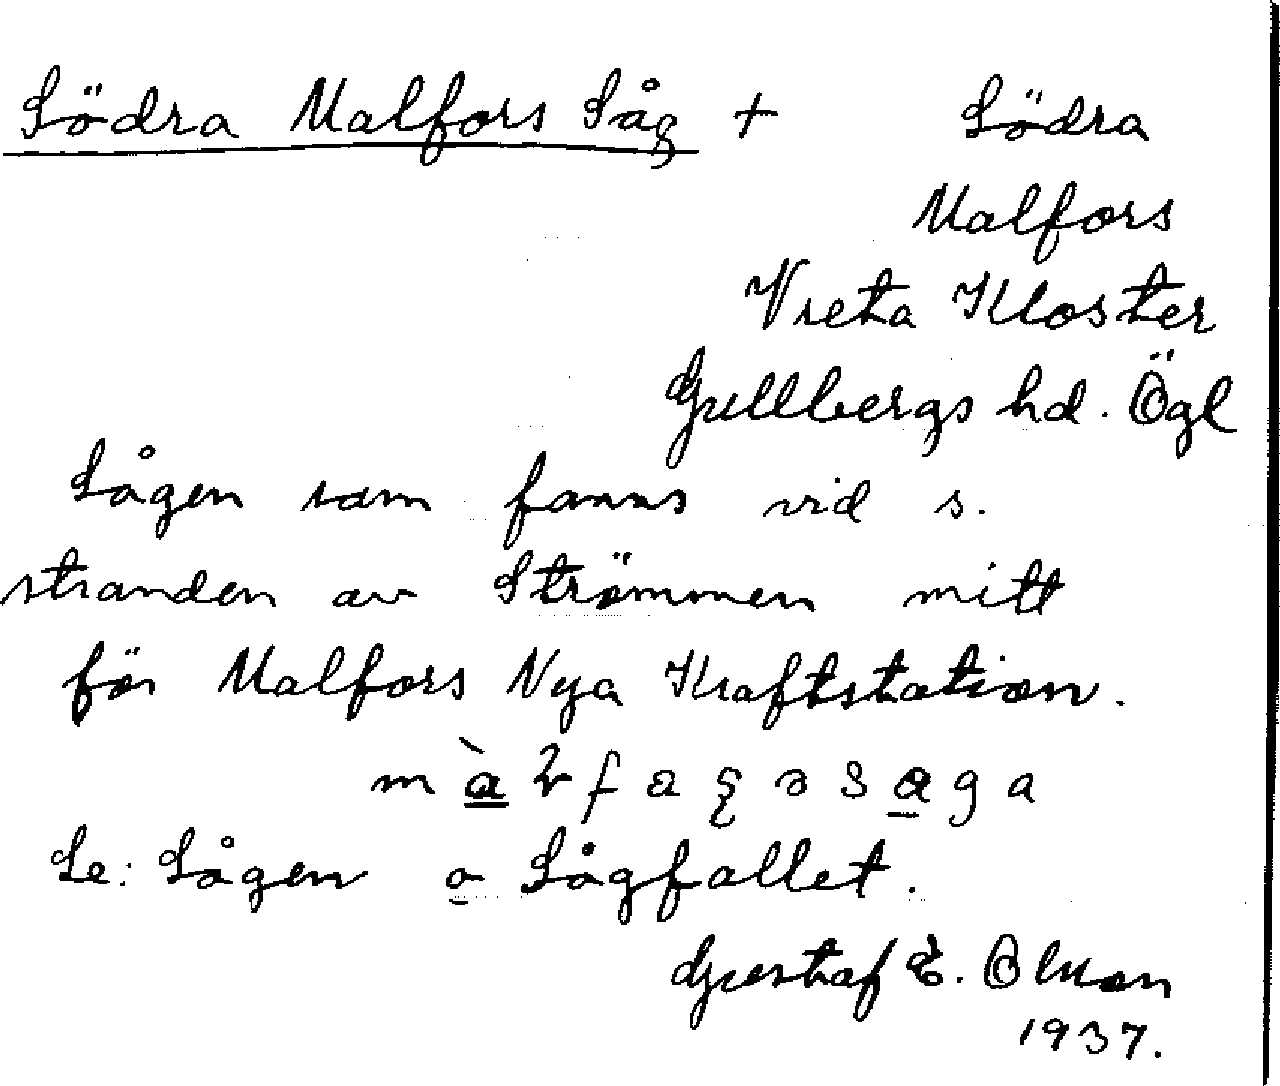 Södra Malfors Såg + Södra
Malfors
Vreta Kloster
Gullbergs hd. Ögl
Sågen som fanns vid s.
stranden av Strömmen mitt
för Malfors Nya Kraftstation.
Se: Sågen o Sågfallet.
Gustaf E. Olsson
1937.